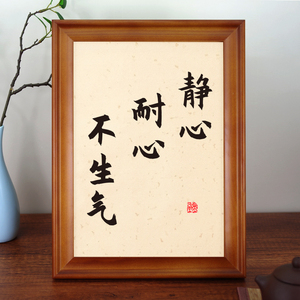 静心
耐心
不生气